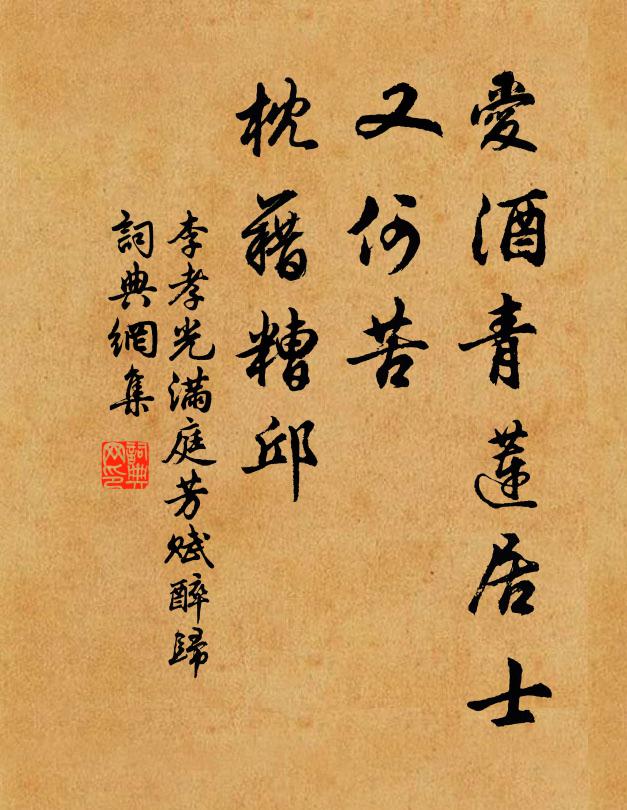 愛酒青蓮居士
又何苦
枕藉糟邱
李孝光滿庭芳賦醉歸
詞典網集
詞典
网印